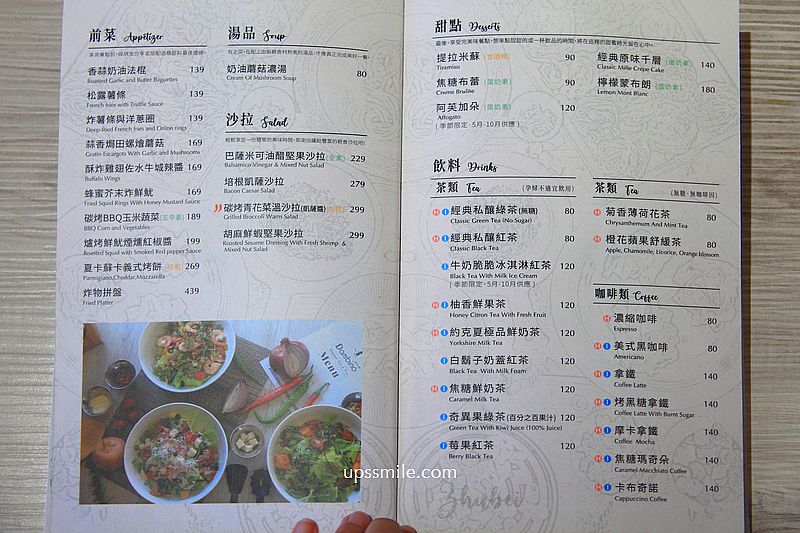 前菜 Appetizer
香蒜奶油法棍 139
Roasted Garlic and Butter Baguettes
松露薯條 139
French fries with Truffle Sauce
炸薯條與洋蔥圈 139
Deep-fried French fries and Onion rings
蒜香焗田螺燴蘑菇 169
Gratin Escargots With Garlic and Mushrooms
酥炸雞翅佐水牛城辣醬 169
Buffalo Wings
蜂蜜芥末炸鮮魷 169
Fried Squid Rings With Honey Mustard Sauce
碳烤BBQ玉米蔬菜(五辛素) 189
BBQ Corn and Vegetables
爐烤鮮魷煙燻紅椒醬 199
Roasted Squid with Smoked Red pepper Sauce
夏卡蘇卡義式烤餅 269
Parmigiano,Cheddar,Mozzarella
炸物拼盤 439
Fried Platter
湯品 Soup
奶油蘑菇濃湯 80
Cream Of Mushroom Soup
沙拉 Salad
巴薩米可油醋堅果沙拉(全素) 229
Balsamico Vinegar & Mixed Nut Salad
培根凱薩沙拉 279
Bacon Caesar Salad
碳烤青花菜溫沙拉(凱薩醬) 299
Grilled Broccoli Warm Salad
胡麻鮮蝦堅果沙拉 299
Roasted Sesame Dressing With Fresh Shrimp &
Mixed Nut Salad
Dambino
Menu
upssmile.com
甜點 Desserts
提拉米蘇 90
Tiramisu
焦糖布蕾(蛋奶素) 90
Creme Brulee
阿芙加朵(蛋奶素) 120
Affogato
(季節限定·5月-10月供應)
經典原味千層(蛋奶素) 140
Classic Mille Crepe Cake
檸檬蒙布朗(蛋奶素) 180
Lemon Mont Blanc
飲料 Drinks
茶類 Tea (孕婦不適宜飲用)
H I 經典私釀綠茶(無糖) 80
Classic Green Tea (No Sugar)
H I 經典私釀紅茶 80
Classic Black Tea
I 牛奶脆脆冰淇淋紅茶 120
Black Tea With Milk Ice Cream
(季節限定·5月-10月供應)
H I 柚香鮮果茶 120
Honey Citron Tea With Fresh Fruit
H I 約克夏極品鮮奶茶 120
Yorkshire Milk Tea
I 白鬍子奶蓋紅茶 120
Black Tea With Milk Foam
H I 焦糖鮮奶茶 120
Caramel Milk Tea
I 奇異果綠茶(百分之百果汁) 120
Green Tea With Kiwi Juice (100% Juice)
I 莓果紅茶 120
Berry Black Tea
茶類 Tea (無糖·無咖啡因)
H 菊香薄荷花茶 80
Chrysanthemum And Mint Tea
H 橙花蘋果舒緩茶 80
Apple, Chamomile, Licorice, Orange blossom
咖啡類 Coffee
H 濃縮咖啡 80
Espresso
H I 美式黑咖啡 80
Americano
H I 拿鐵 140
Coffee Latte
H I 烤黑糖拿鐵 140
Coffee Latte With Burnt Sugar
H I 摩卡拿鐵 140
Coffee Mocha
H I 焦糖瑪奇朵 140
Caramel Macchiato Coffee
H I 卡布奇諾 140
Cappuccino Coffee
Zhubei